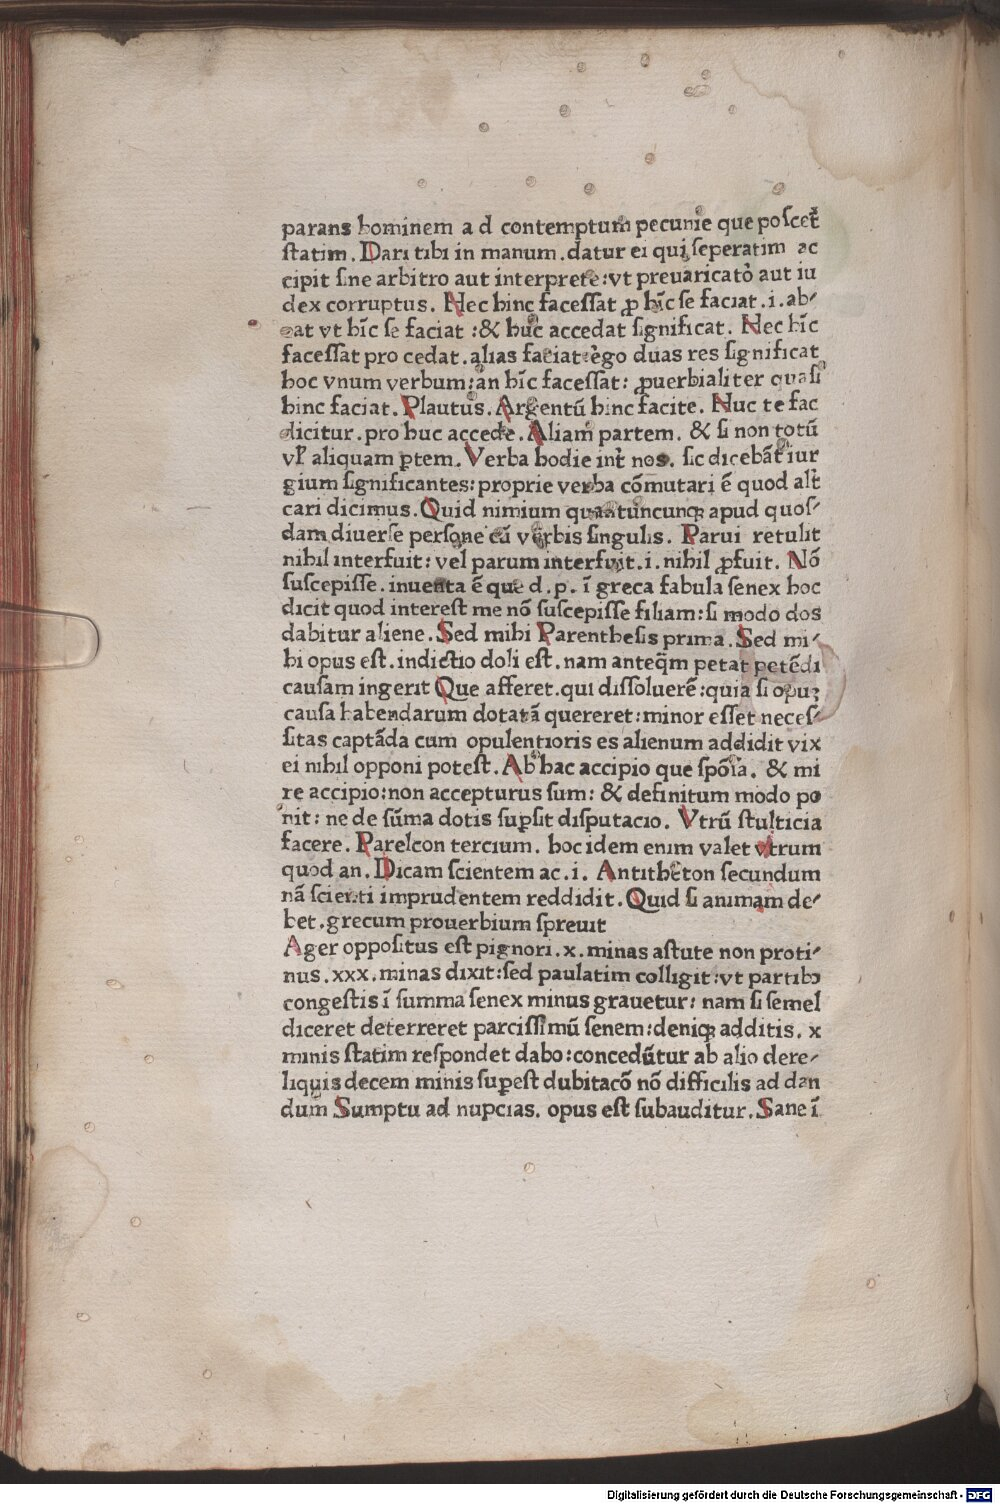 parans hominem a d contemptum pecunie que poscet̉
statim. Dari tibi in manum. datur ei qui seperatim ac
cipit sine arbitro aut interprete: vt preuaricato᷑ aut iu
dex corruptus. Nec hinc facessat ꝓ hīc se faciat. i. ab⸗
eat vt hīc se faciat : & huc accedat significat. Nec hīc
facessat pro cedat. alias faciat: ego duas res significat
hoc vnum verbum: an hīc facessat: ꝓuerbialiter quasi
hinc faciat. Plautus. Argentū hinc facite. Nuc te fac
dicitur. pro huc accede. Aliam partem. & si non totū
vl̓ aliquam ꝑtem. Verba hodie int̉ nos. sic dicebāt iur
gium significantes: proprie verba cōmutari ē quod alt̉
cari dicimus. Quid nimium quantuncunqꝫ apud quos⸗
dam diuerse persone cū verbis singulis. Parui retulit
nihil interfuit: vel parum interfuit. i. nihil ꝓfuit. Nō
suscepisse. inuenta ē que d. p. ī greca fabula senex hoc
dicit quod interest me nō suscepisse filiam: si modo dos
dabitur aliene. Sed mihi Parenthesis prima. Sed mi⸗
hi opus est. indictio doli est. nam anteq̄m petat petēdi
causam ingerit Que afferet. qui dissoluerē: quia si opuꝫ
causa habendarum dotatā quereret: minor esset neces⸗
sitas captāda cum opulentioris es alienum addidit vix
ei nihil opponi potest. Ab hac accipio que spōsa. & mi
re accipio: non accepturus sum: & definitum modo po
nit: ne de sūma dotis suꝑsit disputacio. Vtrū stulticia
facere. Parelcon tercium. hoc idem enim valet vtrum
quod an. Dicam scientem ac. i. Antitheton secundum
nā scienti imprudentem reddidit. Quid si animam de⸗
bet. grecum prouerbium spreuit
Ager oppositus est pignori. x. minas astute non proti⸗
nus. xxx. minas dixit: sed paulatim colligit: vt partibꝰ
congestis ī summa senex minus grauetur: nam si semel
diceret deterreret parcissimū senem: deniqꝫ additis. x
minis statim respondet dabo: concedūtur ab alio dere⸗
liquis decem minis suꝑest dubitacō nō difficilis ad dan
dum Sumptu ad nupcias. opus est subauditur. Sane ī
Digitalisierung gefördert durch die Deutsche Forschungsgemeinschaft - DFG